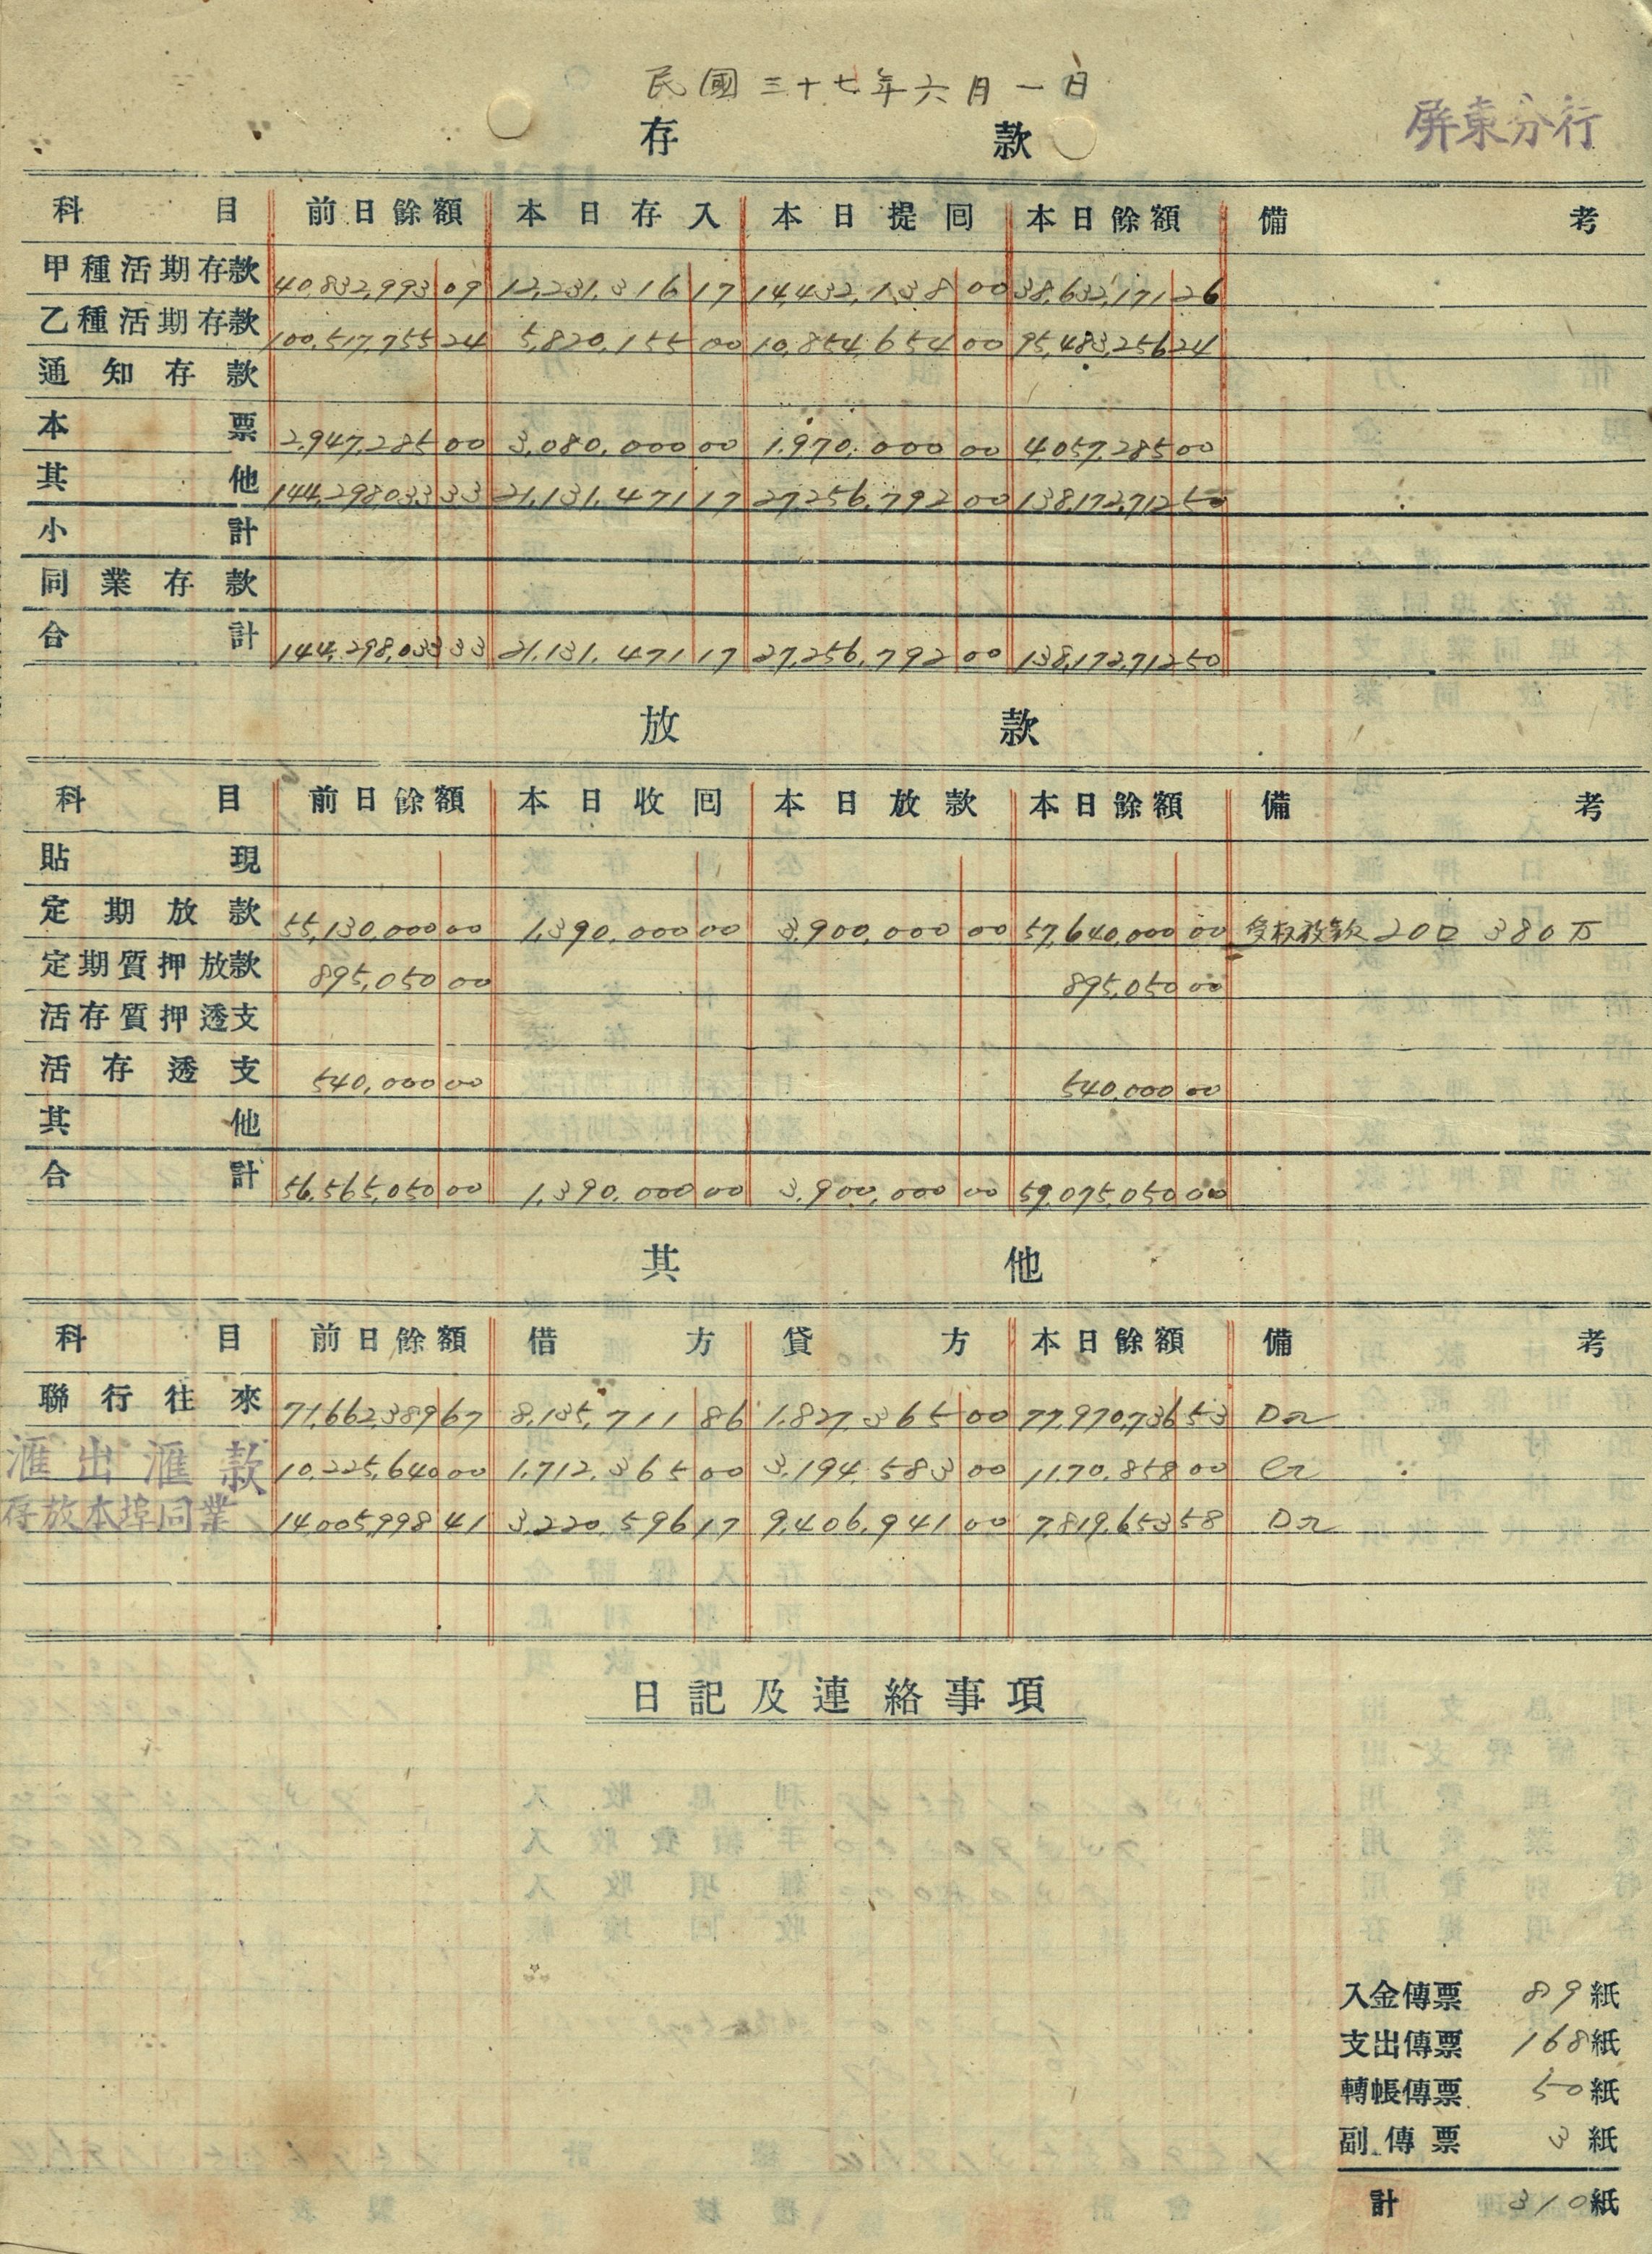 民國三十七年六月一日
屏東分行
存款
科目 前日餘額 本日存入 本日提囘 本日餘額 備考
甲種活期存款 40,832,993 09 12,231,316 17 14,432,138 00 38,632,171 26
乙種活期存款 100,517,755 24 5,820,155 00 10,854,654 00 95,483,256 24
通知存款
本票 2,947,285 00 3,080,000 00 1,970,000 00 4,057,285 00
其他 144,298,033 33 21,131,471 17 27,256,792 00 138,172,712 50
小計
同業存款
合計 144,298,033 33 21,131,471 17 27,256,792 00 138,172,712 50
放款
科目 前日餘額 本日收囘 本日放款 本日餘額 備考
貼現
定期放款 55,130,000 00 1,390,000 00 3,900,000 00 57,640,000 00 放款20口 380万
定期質押放款 895,050 00 895,050 00
活存質押透支
活存透支 540,000 00 540,000 00
其他
合計 56,565,050 00 1,390,000 00 3,900,000 00 59,075,050 00
其他
科目 前日餘額 借方 貸方 本日餘額 備考
聯行往來 71,662,389 67 8,135,711 86 1,827,365 00 77,970,736 53 Dr
滙出滙款 10,225,640 00 1,712,365 00 3,194,583 00 11,70,858 00 Cr
存放本埠同業 14,005,998 41 3,220,596 17 9,406,941 00 7,819,653 58 Dr
日記及連絡事項
入金傳票 89紙
支出傳票 168紙
轉帳傳票 50紙
副傳票 3紙
計 310紙